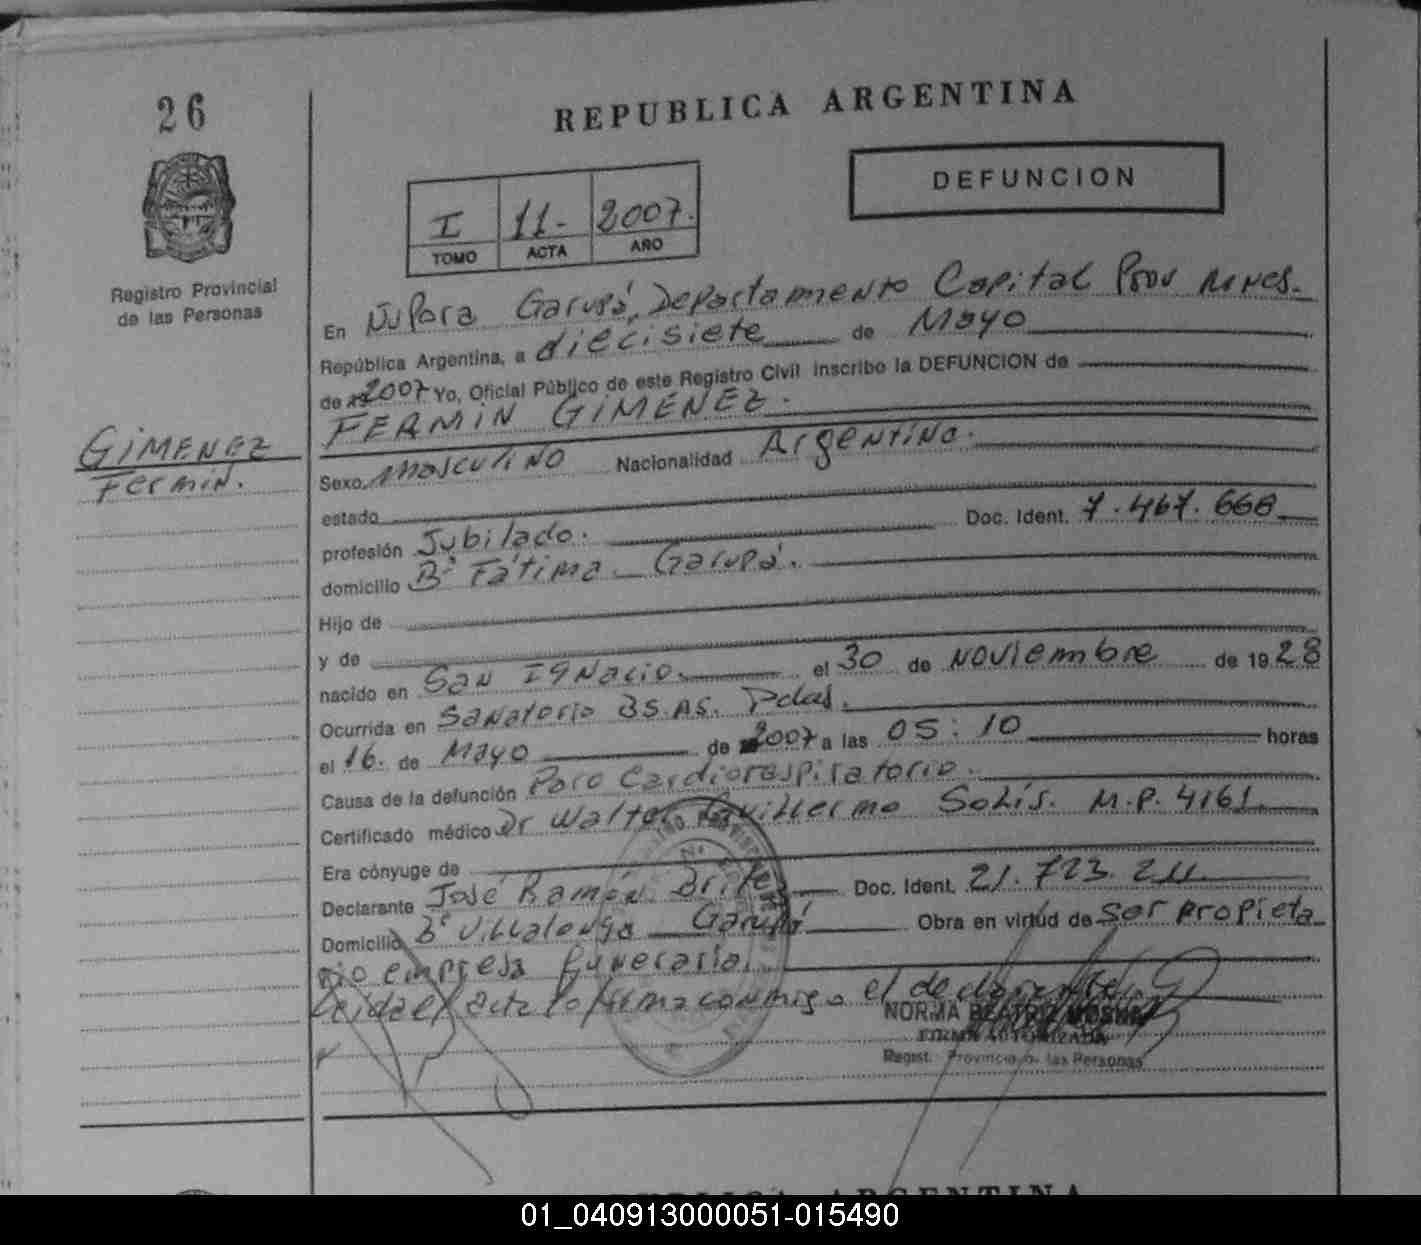 26
REPUBLICA ARGENTINA
DEFUNCION
I 11- 2007.
TOMO ACTA AÑO
Registro Provincial
de las Personas
En Ñu Pora Garupá, Departamento Capital Prov Mnes.
República Argentina, a diecisiete de Mayo
de 2007 Yo, Oficial Público de este Registro Civil inscribo la DEFUNCION de
FERMIN GIMENEZ.
GIMENEZ
Fermin.
Sexo masculino Nacionalidad Argentino.
estado
profesión Jubilado. Doc. Ident. 7.467.668
domicilio Bº Fátima - Garupá.
Hijo de
y de
nacido en San Ignacio. el 30 de Noviembre de 19 28
Ocurrida en Sanatorio BS. AS. Pdas.
el 16. de Mayo de 2007 a las 05:10 horas
Causa de la defunción Paro Cardiorespiratorio.
Certificado médico Dr Walter Guillermo Solís. M.P. 4161
Era cónyuge de
Declarante José Ramón Doc. Ident. 21.723.
Domicilio Bº Villalonga - Garupá Obra en virtud de ser propieta
rio empresa funeraria.
Leida el acta lo firma conmigo el declarante.
NORMA BEATRIZ
FIRMA AUTORIZADA
Regist. Provincial de las Personas
REPUBLICA ARGENTINA
01_040913000051-015490